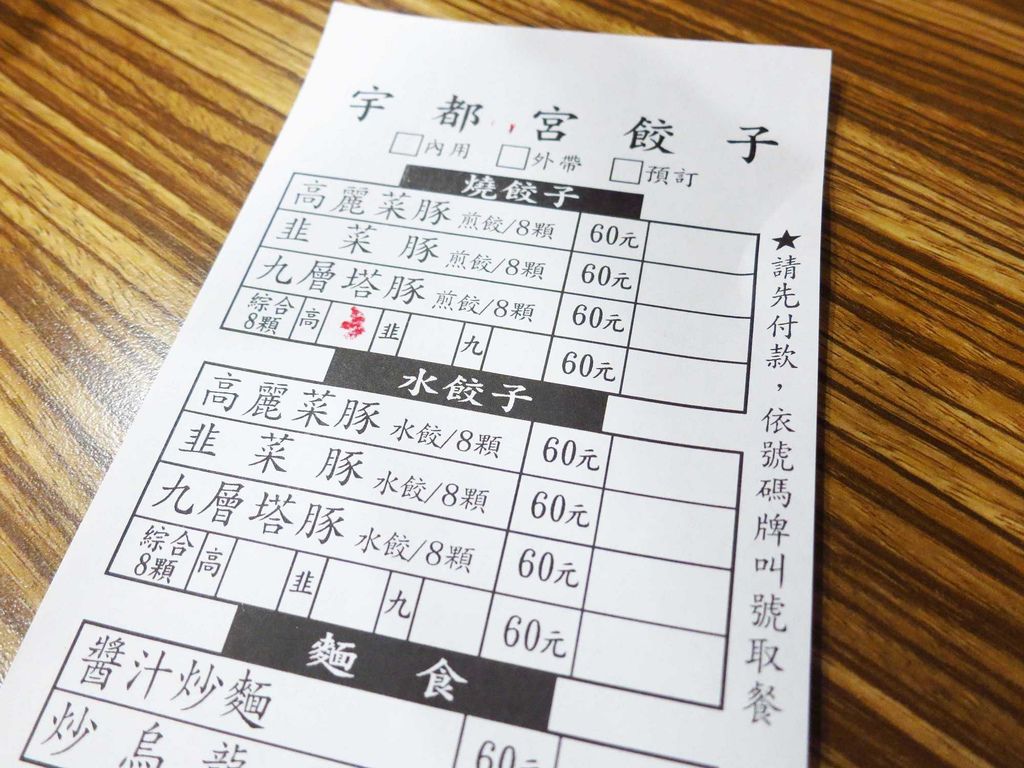 宇都宮餃子
□內用 □外帶 □預訂
燒餃子
高麗菜豚 煎餃/8顆 60元
韭菜豚 煎餃/8顆 60元
九層塔豚 煎餃/8顆 60元
綜合8顆 高 韭 九 60元
水餃子
高麗菜豚 水餃/8顆 60元
韭菜豚 水餃/8顆 60元
九層塔豚 水餃/8顆 60元
綜合8顆 高 韭 九 60元
麵食
醬汁炒麵 60元
炒烏龍
★請先付款，依號碼牌叫號取餐